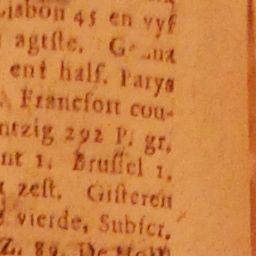 Lisbon 45 en vyf
agtste.
ent half. Parys
Francfort cou-
ntzig 292 P. gr.
nt 1. Brussel 1.
zest. Gisteren
vierde, Subscr.
Z. 89. De